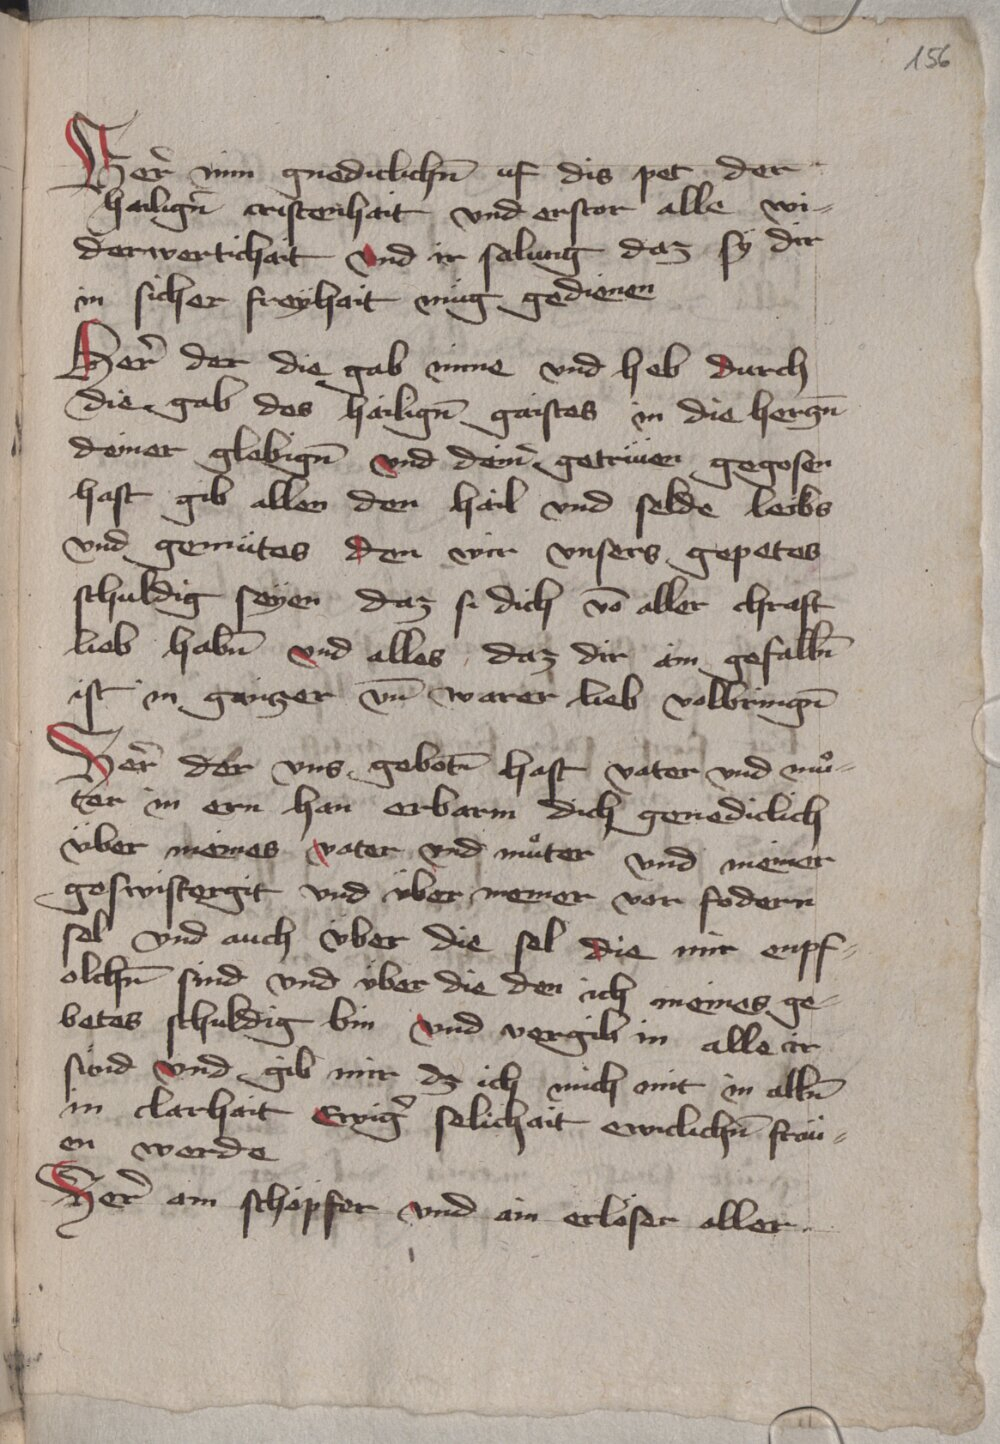 156
Her̄ nim gnediclichn̄ uf dis pet der
heilign̄ cristenhait vnd erstor alle wi-
derwertichait vnd ir salung daz sÿ dir
in sicher freÿhait müg gedienen
Her̄ der die gab mine vnd heb durch
die gab des häilign̄ gaistes in die herczn̄
deiner glebign̄ vnd deinr̄ getrüen gegosen
hast gib allen den häil vnd selde leibs
vnd gemütes den wir vnsers gepetes
schuldig seÿen daz si dich vō aller chraft
lieb habn̄ vnd alles daz dir äin gefalln̄
ist in ganczer vn̄ warer lieb volbringn̄
Her̄ der vns gebotn̄ hast vater vnd mů-
ter in ern han erbarm dich genediclich
über meines vater vnd můter vnd meiner
geswistergit vnd über meiner vor fodern
sel vnd auch über die sel die mir enpf-
olchn̄ sind vnd über die den ich meines ge-
betes schuldig bin vnd vergib in alle ir
sünd vnd gib mir dz ich mich mit in alln̄
in clarhait ewigr̄ selichait ewiclichn̄ fräü-
en werde
Her̄ äin schöpfer vnd äin erlöser aller